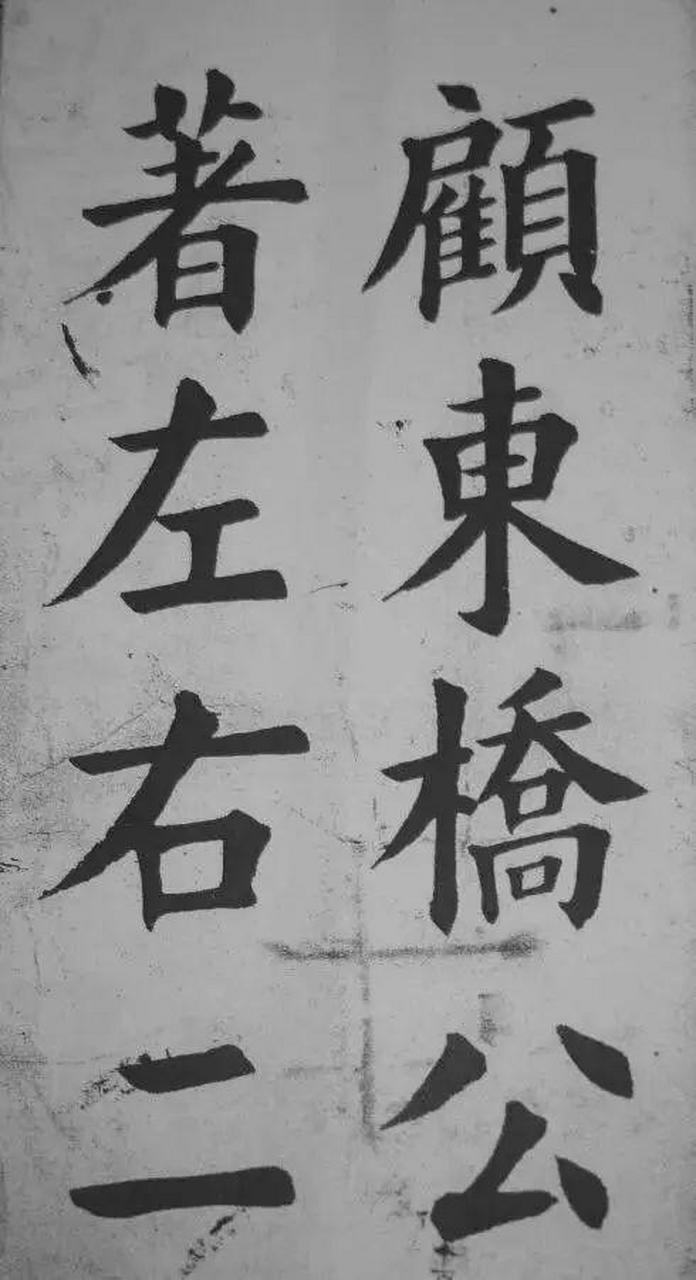 顧東橋公
著左右二